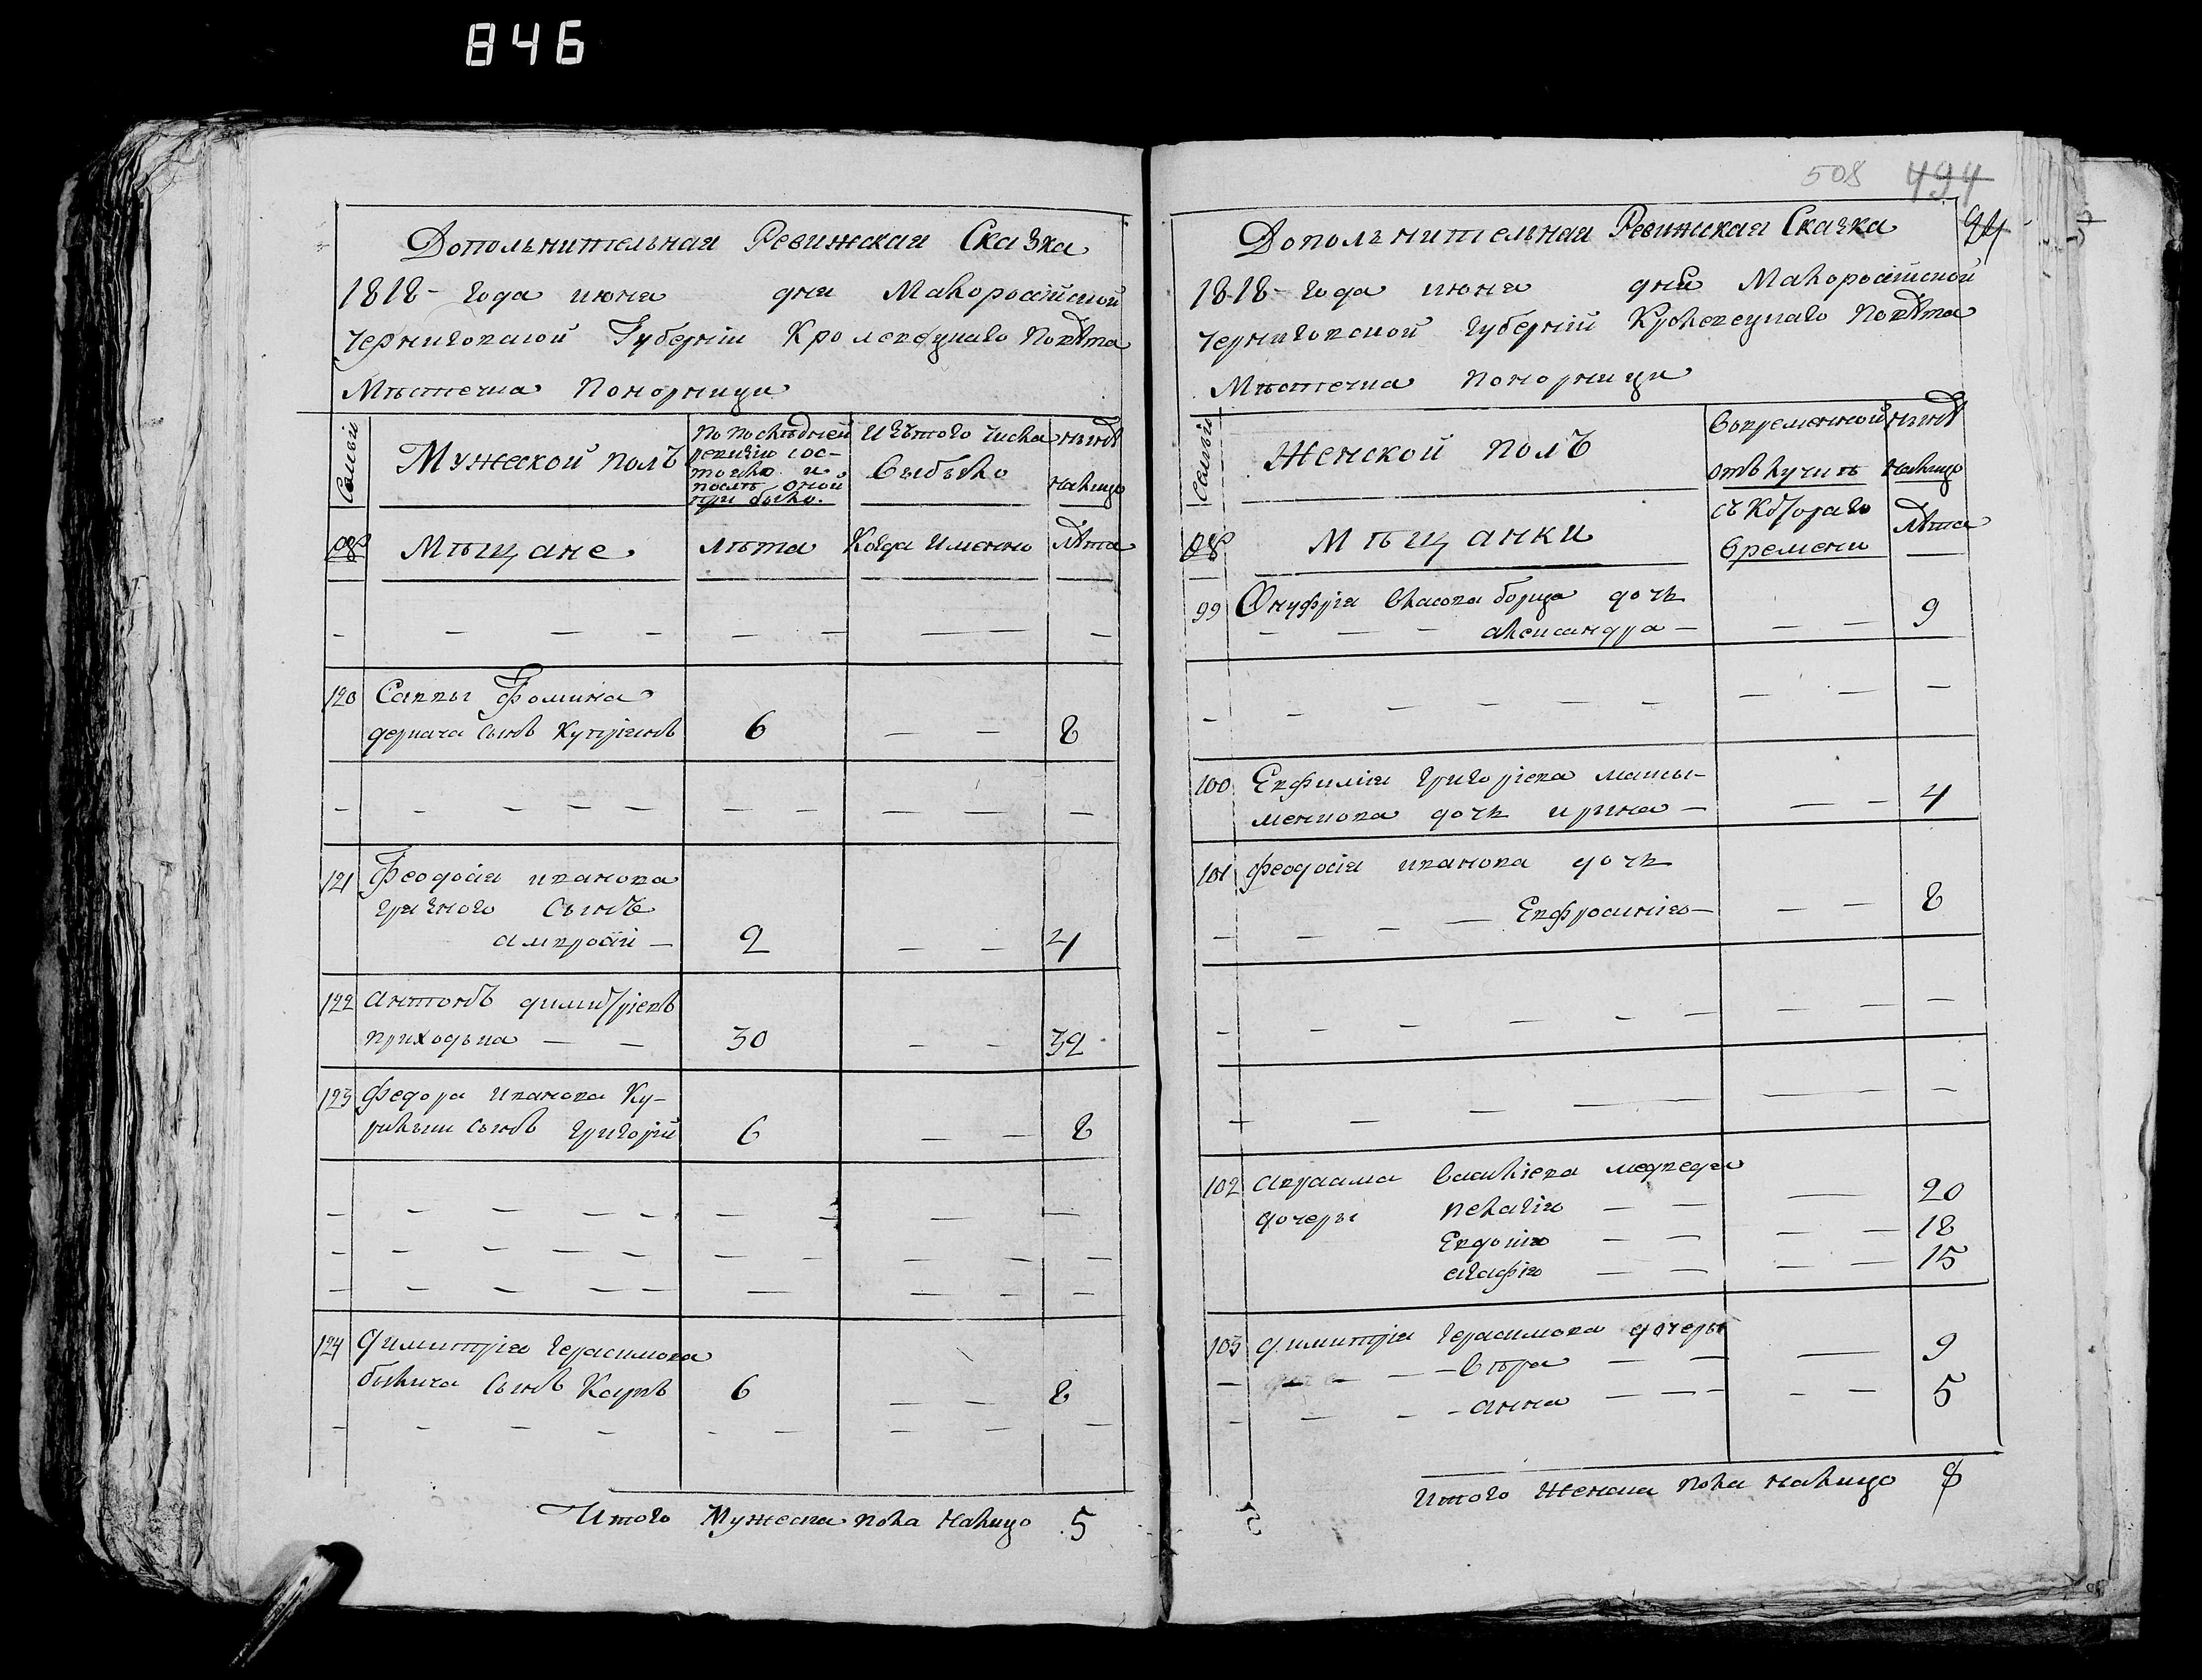 846
Дополънительная Ревижская Сказка
1818 года июня дня Малоросійской
черниговской Губерніи Кролевецкаго Повѣта
Мѣстечка Понорници
Семьи Мужеской полъ По последней ревизіи состояло и послѣ оной прибыло. Изътого числа выбыло Нынѣ налицо
№ Мѣщане лѣта Когда именно Лѣта
120 Саввы Фомина
дернача сынъ Купріянъ 6 8
121 Феодосія иванова
грязного сынъ
амвросій 2 4
122 антонъ димитріевъ
приходька 30 32
123 федора иванова Ку-
рилъчи сынъ григорій 6 8
124 димитрія герасимова
сынъ Карпъ 6 8
Итого Мужеска пола налицо 5
508 494
Дополънительная Ревижская Сказка
1818 года июня дня Малоросійской
черниговской губерній Кролевецкаго Повѣта
Мѣстечка Понорници
Семьи Женской полъ Вовременной отълучкѣ Нынѣ налицо
№ Мѣщанки съ которого времени Лѣта
99 Онуфрія власова борща дочь
александра 9
100 Евфимія григоріева
дочь ирина 4
101 феодосія иванова дочь
Евфросинія 8
102 авраама василіева медведя
дочеры пелагія 20
Евдокія 18
агафія 15
103 димитрія герасимова дочеры
вѣра 9
анна 5
Итого женска пола налицо 8